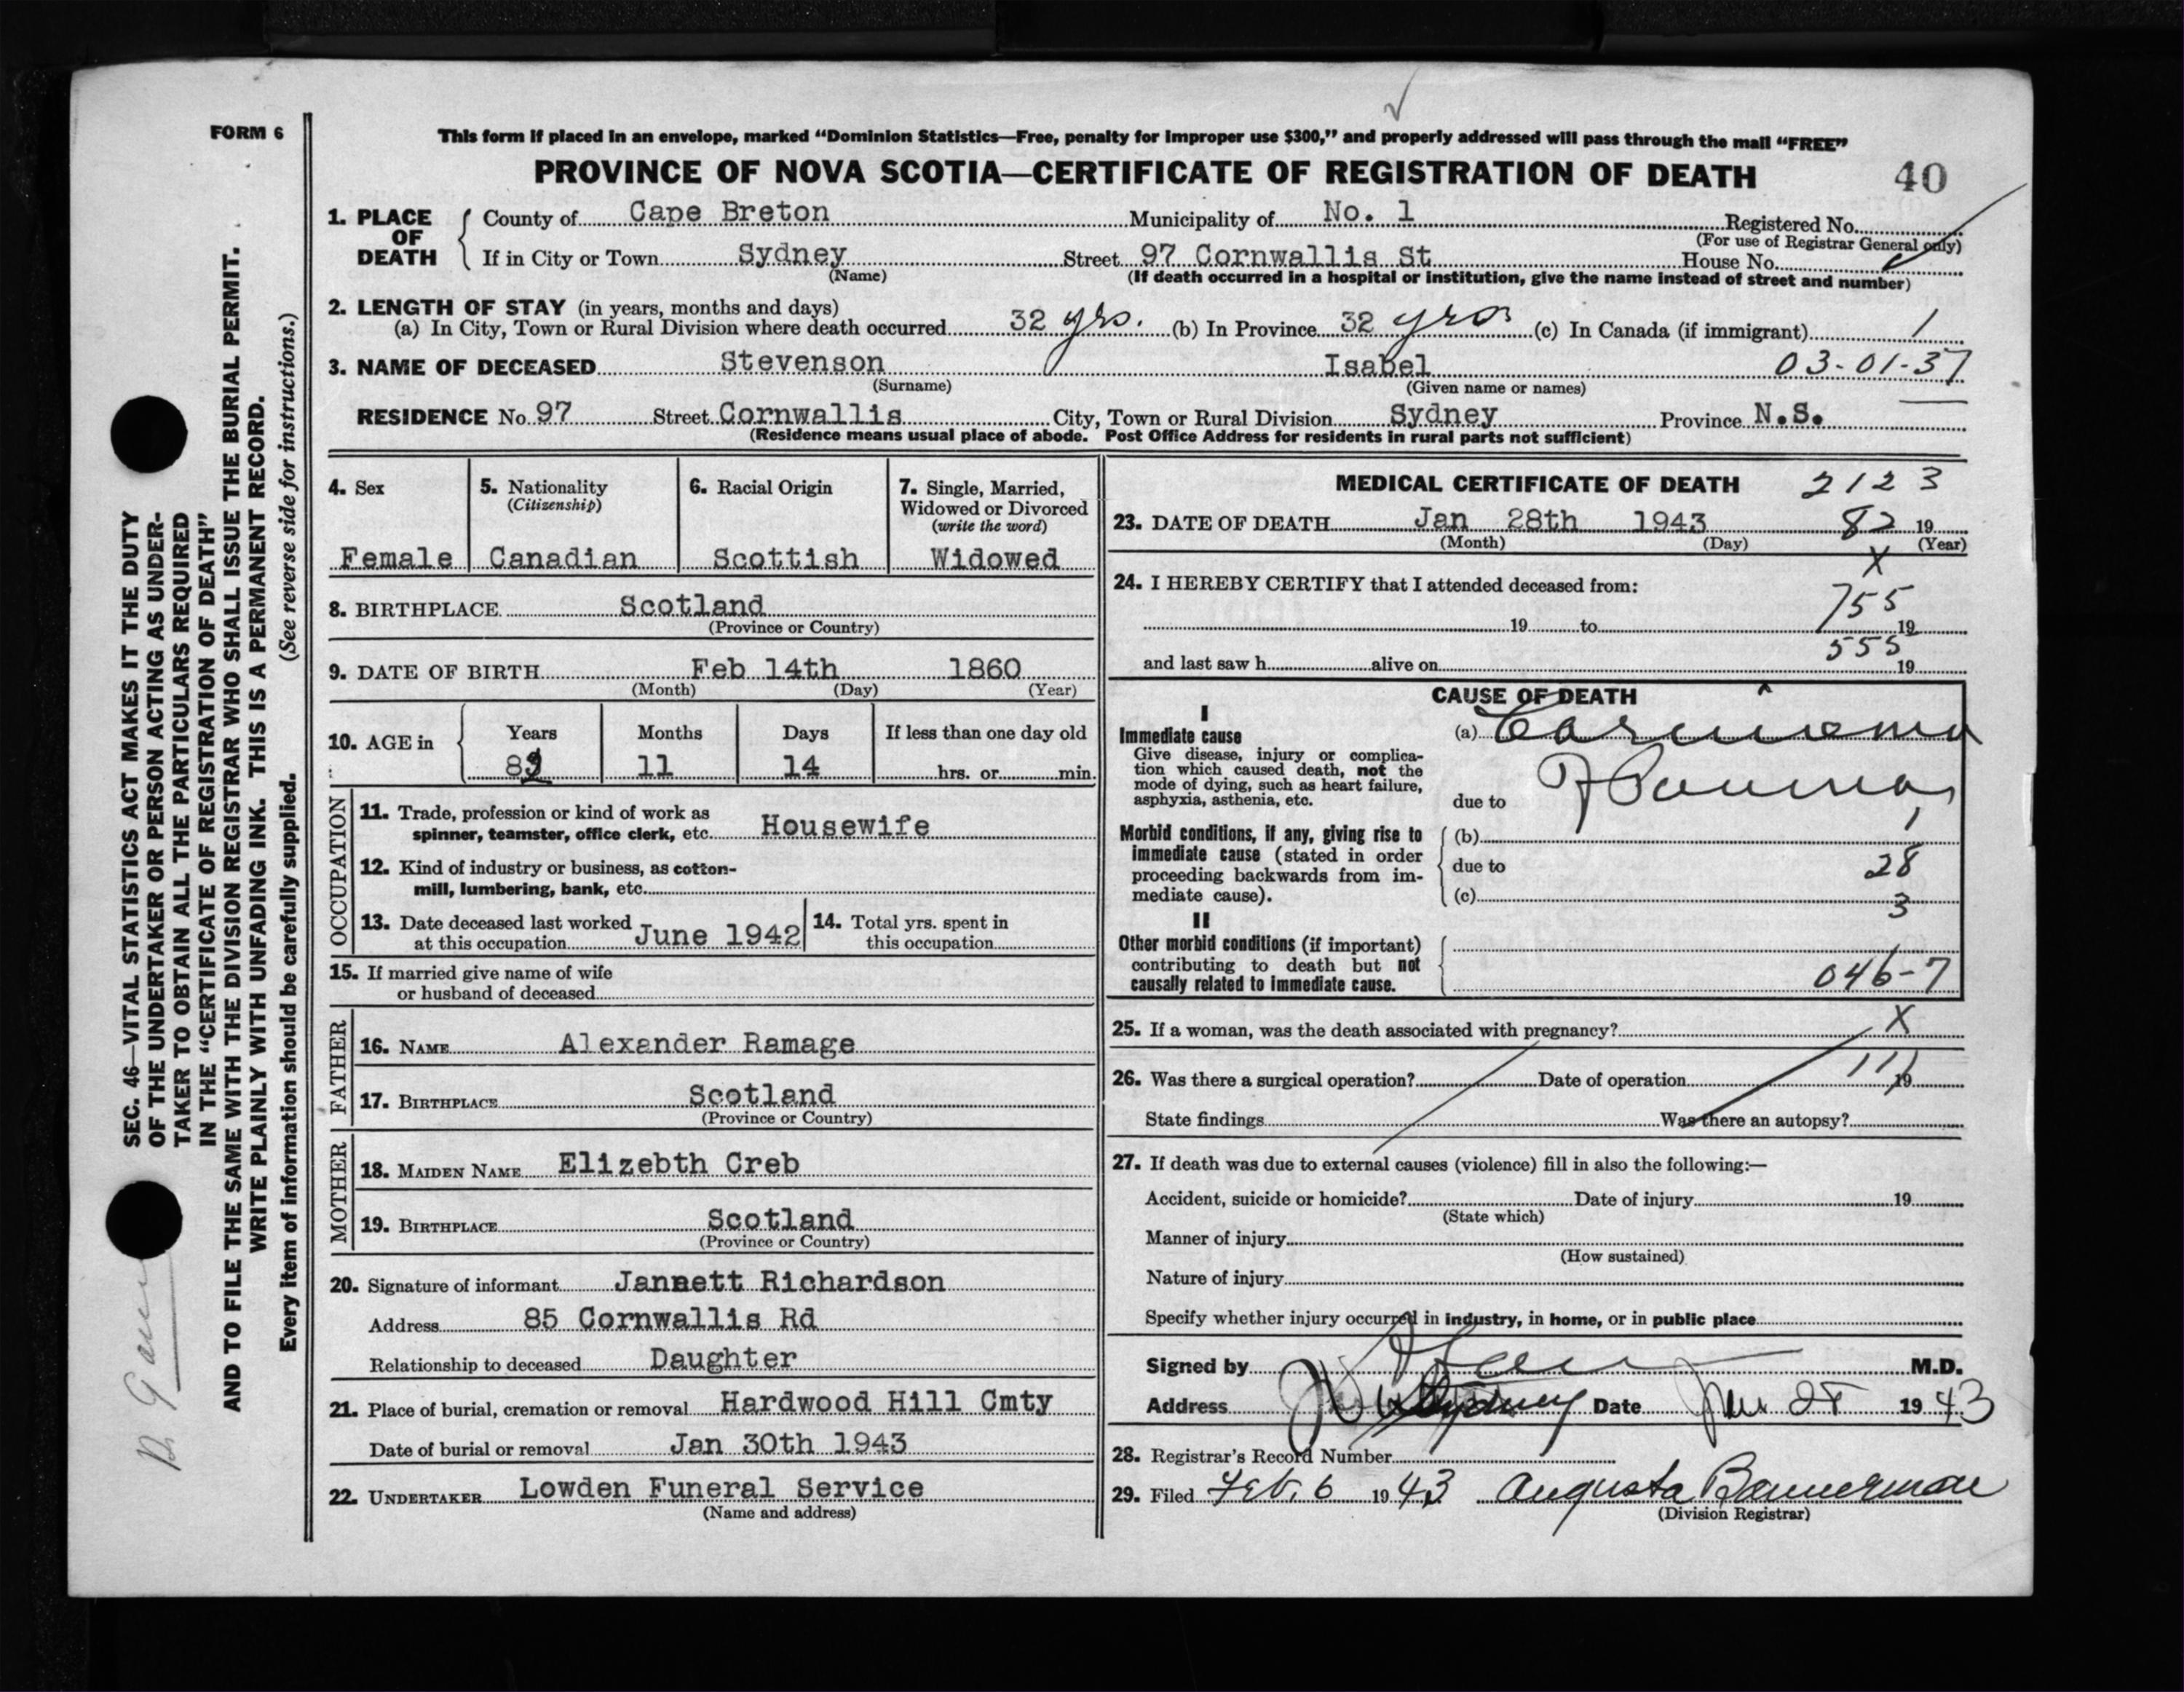 FORM 6
This form if placed in an envelope, marked “Dominion Statistics—Free, penalty for improper use $300,” and properly addressed will pass through the mail “FREE”
PROVINCE OF NOVA SCOTIA—CERTIFICATE OF REGISTRATION OF DEATH 40
1. PLACE OF DEATH
County of Cape Breton Municipality of No. 1 Registered No.
(For use of Registrar General only)
If in City or Town Sydney Street 97 Cornwallis St House No.
(Name) (If death occurred in a hospital or institution, give the name instead of street and number)
2. LENGTH OF STAY (in years, months and days)
(a) In City, Town or Rural Division where death occurred 32 yrs. (b) In Province 32 yrs (c) In Canada (if immigrant)
3. NAME OF DECEASED Stevenson Isabel 03-01-37
(Surname) (Given name or names)
RESIDENCE No. 97 Street Cornwallis City, Town or Rural Division Sydney Province N.S.
(Residence means usual place of abode. Post Office Address for residents in rural parts not sufficient)
4. Sex 5. Nationality 6. Racial Origin 7. Single, Married,
(Citizenship) Widowed or Divorced
(write the word)
Female Canadian Scottish Widowed
8. BIRTHPLACE Scotland
(Province or Country)
9. DATE OF BIRTH Feb 14th 1860
(Month) (Day) (Year)
10. AGE in Years Months Days If less than one day old
82 11 14 hrs. or min.
OCCUPATION
11. Trade, profession or kind of work as
spinner, teamster, office clerk, etc. Housewife
12. Kind of industry or business, as cotton-
mill, lumbering, bank, etc.
13. Date deceased last worked
at this occupation June 1942
14. Total yrs. spent in
this occupation
15. If married give name of wife
or husband of deceased
FATHER
16. NAME Alexander Ramage
17. BIRTHPLACE Scotland
(Province or Country)
MOTHER
18. MAIDEN NAME Elizebth Creb
19. BIRTHPLACE Scotland
(Province or Country)
20. Signature of informant Jannett Richardson
Address 85 Cornwallis Rd
Relationship to deceased Daughter
21. Place of burial, cremation or removal Hardwood Hill Cmty
Date of burial or removal Jan 30th 1943
22. UNDERTAKER Lowden Funeral Service
(Name and address)
MEDICAL CERTIFICATE OF DEATH 2123
23. DATE OF DEATH Jan 28th 1943 82 19
(Month) (Day) (Year)
X
24. I HEREBY CERTIFY that I attended deceased from:
755
19 to 19
555
and last saw h alive on 19
CAUSE OF DEATH
I
Immediate cause
Give disease, injury or complica-
tion which caused death, not the
mode of dying, such as heart failure,
asphyxia, asthenia, etc.
(a) Carcinoma
due to
Morbid conditions, if any, giving rise to
immediate cause (stated in order
proceeding backwards from im-
mediate cause).
(b)
due to 28
(c) 3
II
Other morbid conditions (if important)
contributing to death but not
causally related to immediate cause.
046-7
25. If a woman, was the death associated with pregnancy? X
26. Was there a surgical operation? Date of operation 19
State findings Was there an autopsy?
27. If death was due to external causes (violence) fill in also the following:—
Accident, suicide or homicide? Date of injury 19
(State which)
Manner of injury
(How sustained)
Nature of injury
Specify whether injury occurred in industry, in home, or in public place
Signed by M.D.
Address Sydney Date Jan 28 1943
28. Registrar's Record Number
29. Filed Feb. 6 1943 Augusta Bannerman
(Division Registrar)
SEC. 46—VITAL STATISTICS ACT MAKES IT THE DUTY
OF THE UNDERTAKER OR PERSON ACTING AS UNDER-
TAKER TO OBTAIN ALL THE PARTICULARS REQUIRED
IN THE “CERTIFICATE OF REGISTRATION OF DEATH”
AND TO FILE THE SAME WITH THE DIVISION REGISTRAR WHO SHALL ISSUE THE BURIAL PERMIT.
WRITE PLAINLY WITH UNFADING INK. THIS IS A PERMANENT RECORD.
Every item of information should be carefully supplied. (See reverse side for instructions.)